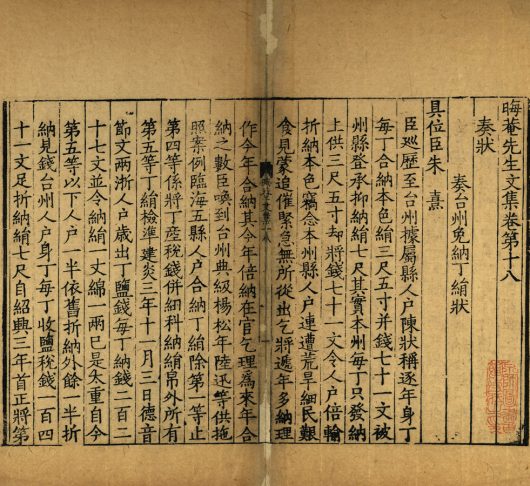 晦菴先生文集卷第十八
奏狀
奏台州免納丁絹狀
具位臣朱熹
臣巡歷至台州據屬縣人户陳狀稱逐年身丁
每丁合納本色絹三尺五寸并錢七十一文被
州縣登承抑納絹七尺其實本州每丁只發納
上供三尺五寸却將錢七十一文令人户倍輸
折納本色竊念本州縣人户連遭荒旱細民艱
食見蒙追催緊急無所從出乞將遞年多納理
作今年合納其今年倍納在官乞理爲來年合
納之數臣喚到台州典級楊松年陸迅等供拖
照案例臨海五縣人户合納丁絹除第一等止
第四等係將丁産稅錢併細科納絹帛外所有
第五等丁絹檢準建炎三年十一月三日德音
節文兩浙人户歲出丁鹽錢每丁納錢二百二
十七文並令納絹一丈綿一兩已是太重自今
第五等以下人户一半依舊折納外餘一半折
納見錢台州人户身丁每丁收鹽稅錢一百四
十一文足折納絹七尺自紹興三年首正將第